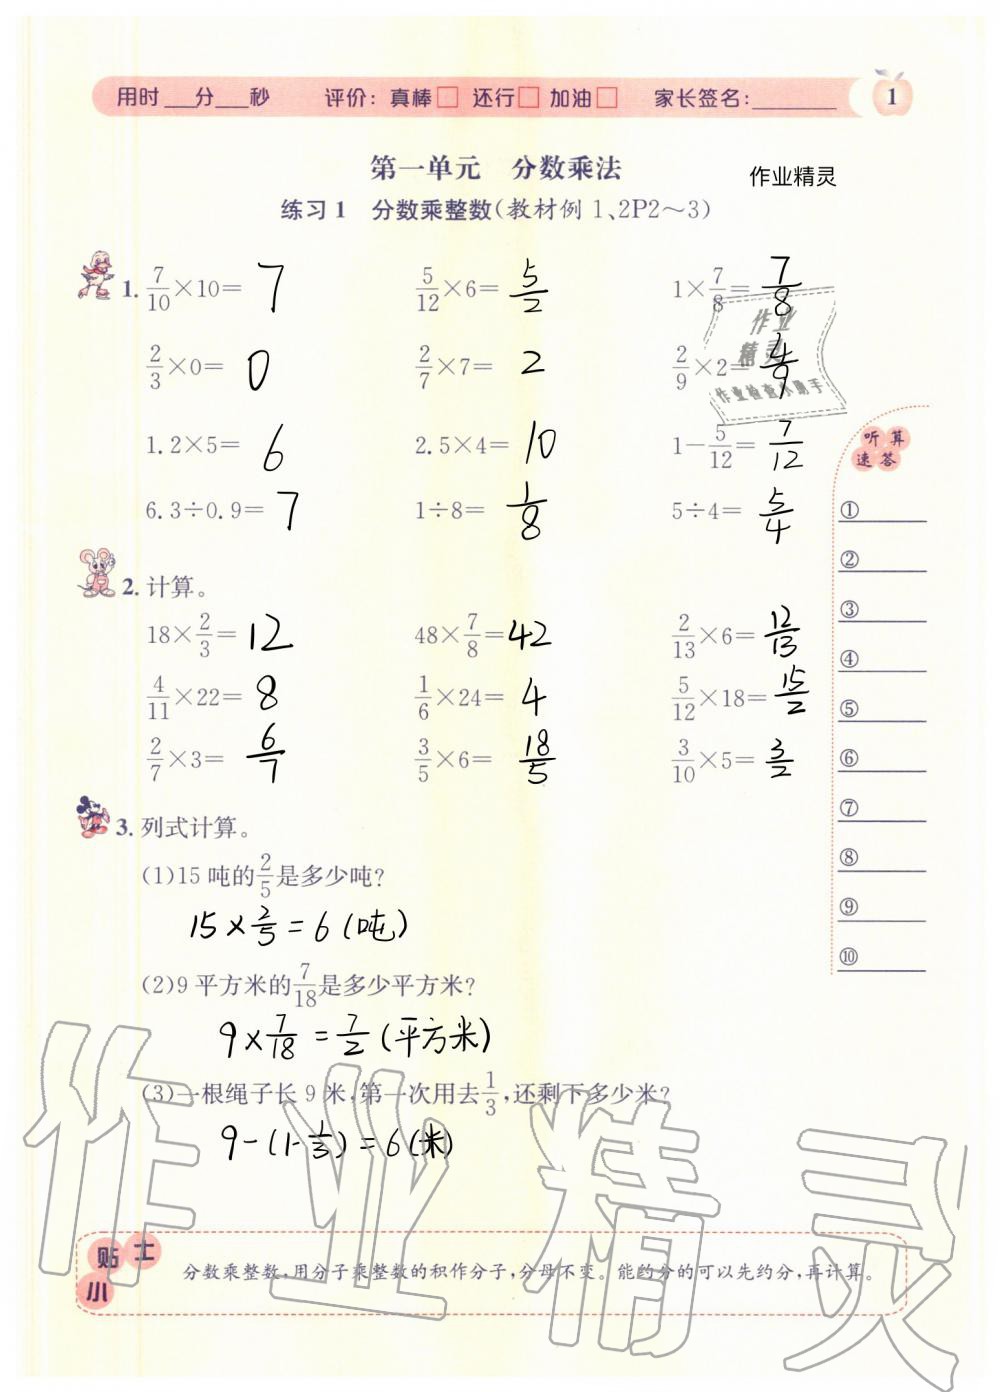 用时___分___秒 评价：真棒□ 还行□ 加油□ 家长签名：________ 1
第一单元 分数乘法
作业精灵
练习1 分数乘整数（教材例1、2P2～3）
1. 7/10×10= 7 5/12×6= 5/2 1×7/8= 7/8
作业
精灵
作业检查小助手
2/3×0= 0 2/7×7= 2 2/9×2= 4/9
1.2×5= 6 2.5×4= 10 1-5/12= 7/12
6.3÷0.9= 7 1÷8= 1/8 5÷4= 5/4
听算
速答
①
②
③
④
⑤
⑥
⑦
⑧
⑨
⑩
2. 计算。
18×2/3= 12 48×7/8= 42 2/13×6= 12/13
4/11×22= 8 1/6×24= 4 5/12×18= 15/2
2/7×3= 6/7 3/5×6= 18/5 3/10×5= 3/2
3. 列式计算。
(1)15吨的2/5是多少吨?
15×2/5=6(吨)
(2)9平方米的7/18是多少平方米?
9×7/18=7/2(平方米)
(3)一根绳子长9米,第一次用去1/3,还剩下多少米?
9-(1-1/3)=6(米)
作业精灵
小贴士
分数乘整数,用分子乘整数的积作分子,分母不变。能约分的可以先约分,再计算。